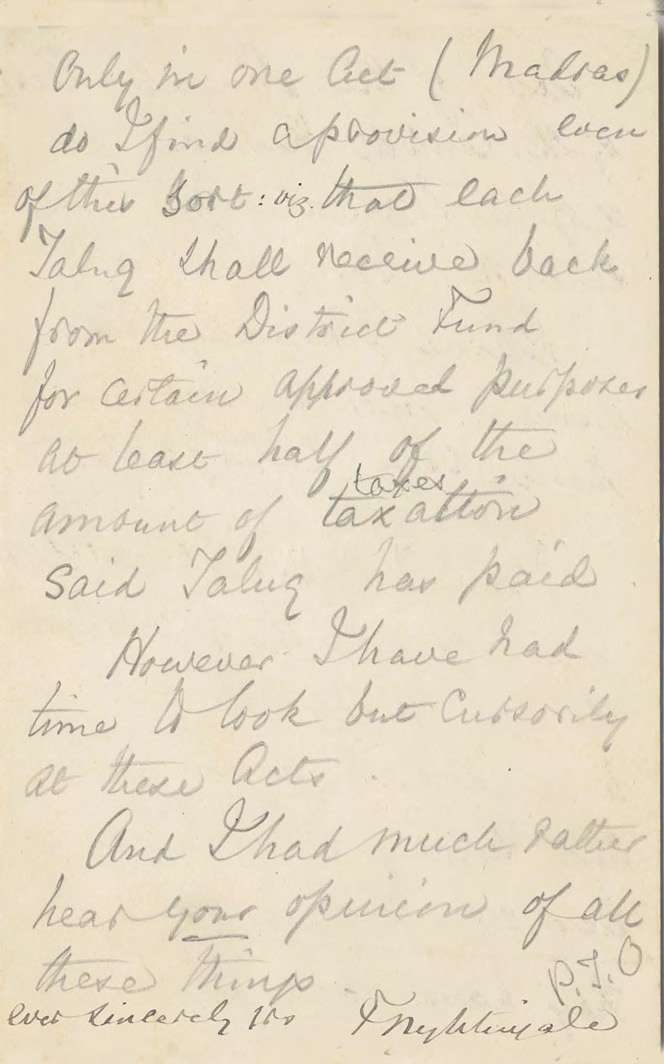 Only in one Act (Madras)
do I find a provision even
of this sort: viz. that each
Taluq shall receive back
from the District Fund
for certain approved purposes
at least half of the
taxes
amount of taxation
said Taluq has paid.
However I have had
time to look but cursorily
at these Acts.
And I had much rather
hear your opinion of all
these things.
P.T.O
ever sincerely yrs F Nightingale